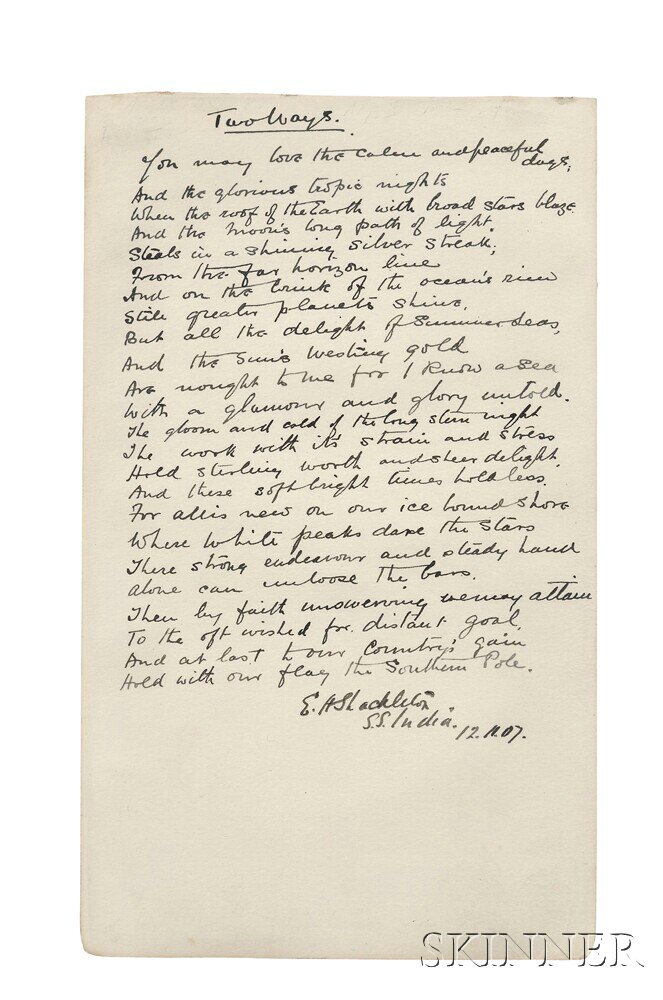 Two Ways.
You may love the calm and peaceful days;
And the glorious tropic nights
When the roof of the Earth with broad stars blaze
And the Moon's long path of light.
Steals in a shining silver streak;
From the far horizon line
And on the brink of the ocean's rim
Still greater planets shine.
But all the delight of Summer Seas,
And the Sun's Westing gold
Are nought to me for I know a sea
With a glamour and glory untold.
The gloom and cold of the long stern night
The work with its strain and stress
Hold sterling worth and sheer delight
And these soft bright times hold less.
For all is new on our ice bound shore
Where White peaks dare the Stars
There strong endeavour and steady hand
alone can unloose the bars.
Then by faith unswerving we may attain
To the oft wished for distant goal
And at last to our Country's gain
Hold with our flag the Southern Pole.
E. H Shackleton
S.S. India.
12.11.07.
SKINNER